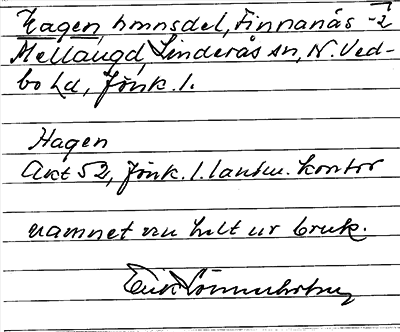 Hagen, hmnsdel, Finnanäs -2
Mellangd, Linderås sn, N. Ved-
bo hd, Jönk. l.
Hagen
Akt 52, Jönk. l. lantm. kontor
namnet nu helt ur bruk.
Erik